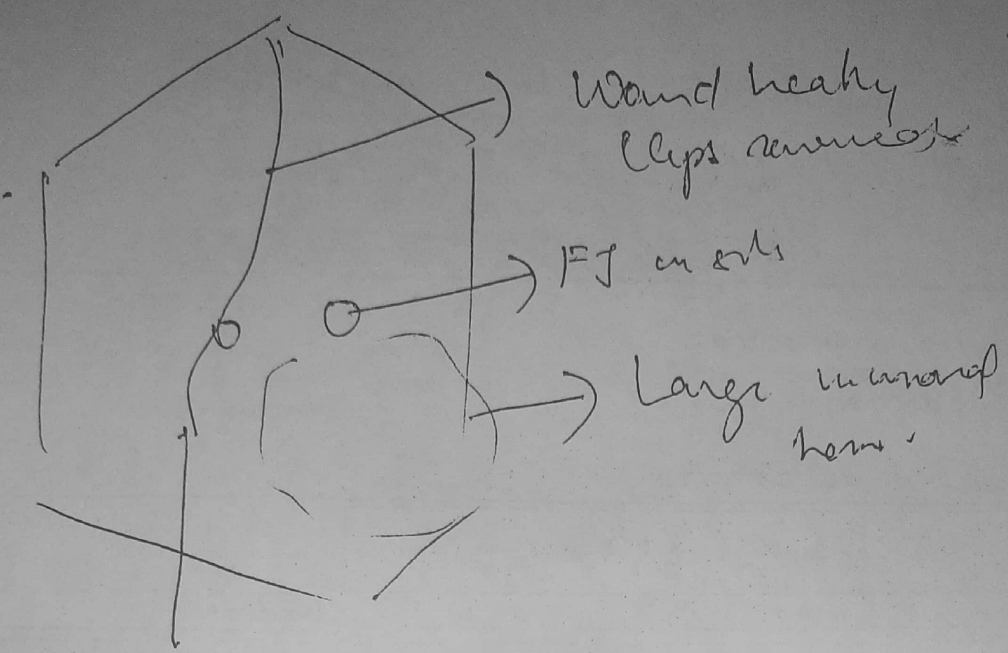 Wound healing
Clips removed
FJ in situ
Large incisional
hernia